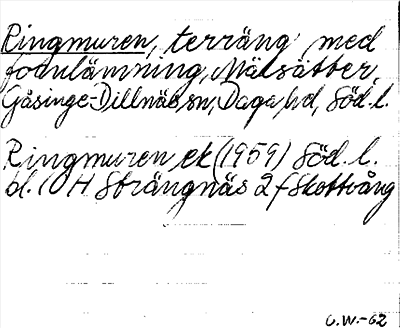 Ringmuren, terräng med
fornlämning, Mälsätter,
Gåsinge-Dillnäs sn, Daga hd, Söd. l.
Ringmuren ek (1959) Söd. l.
bl. 10 H Strängnäs 2 f Skottvång
C.W.-62